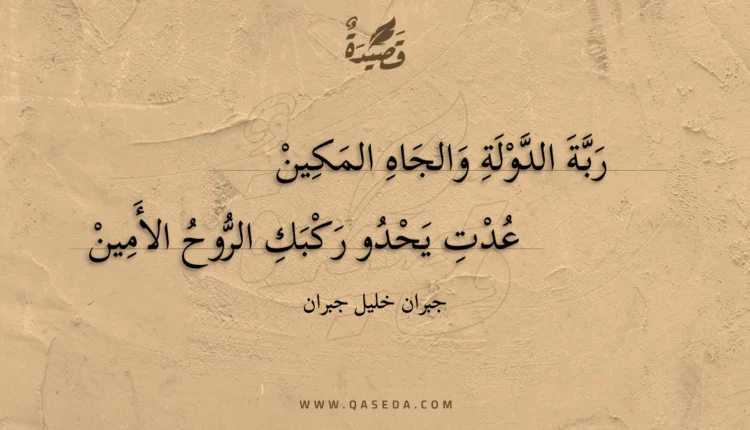 قَصِيدَةٌ
رَبَّةَ الدَّوْلَةِ وَالجَاهِ المَكِينْ
عُدْتِ يَحْدُو رَكْبَكِ الرُّوحُ الأَمِينْ
جبران خليل جبران
WWW.QASEDA.COM